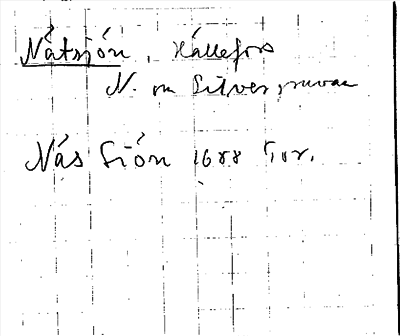 Nåtsjön, Hällefors
N. om Silvergruvan
Näs Siön 1688